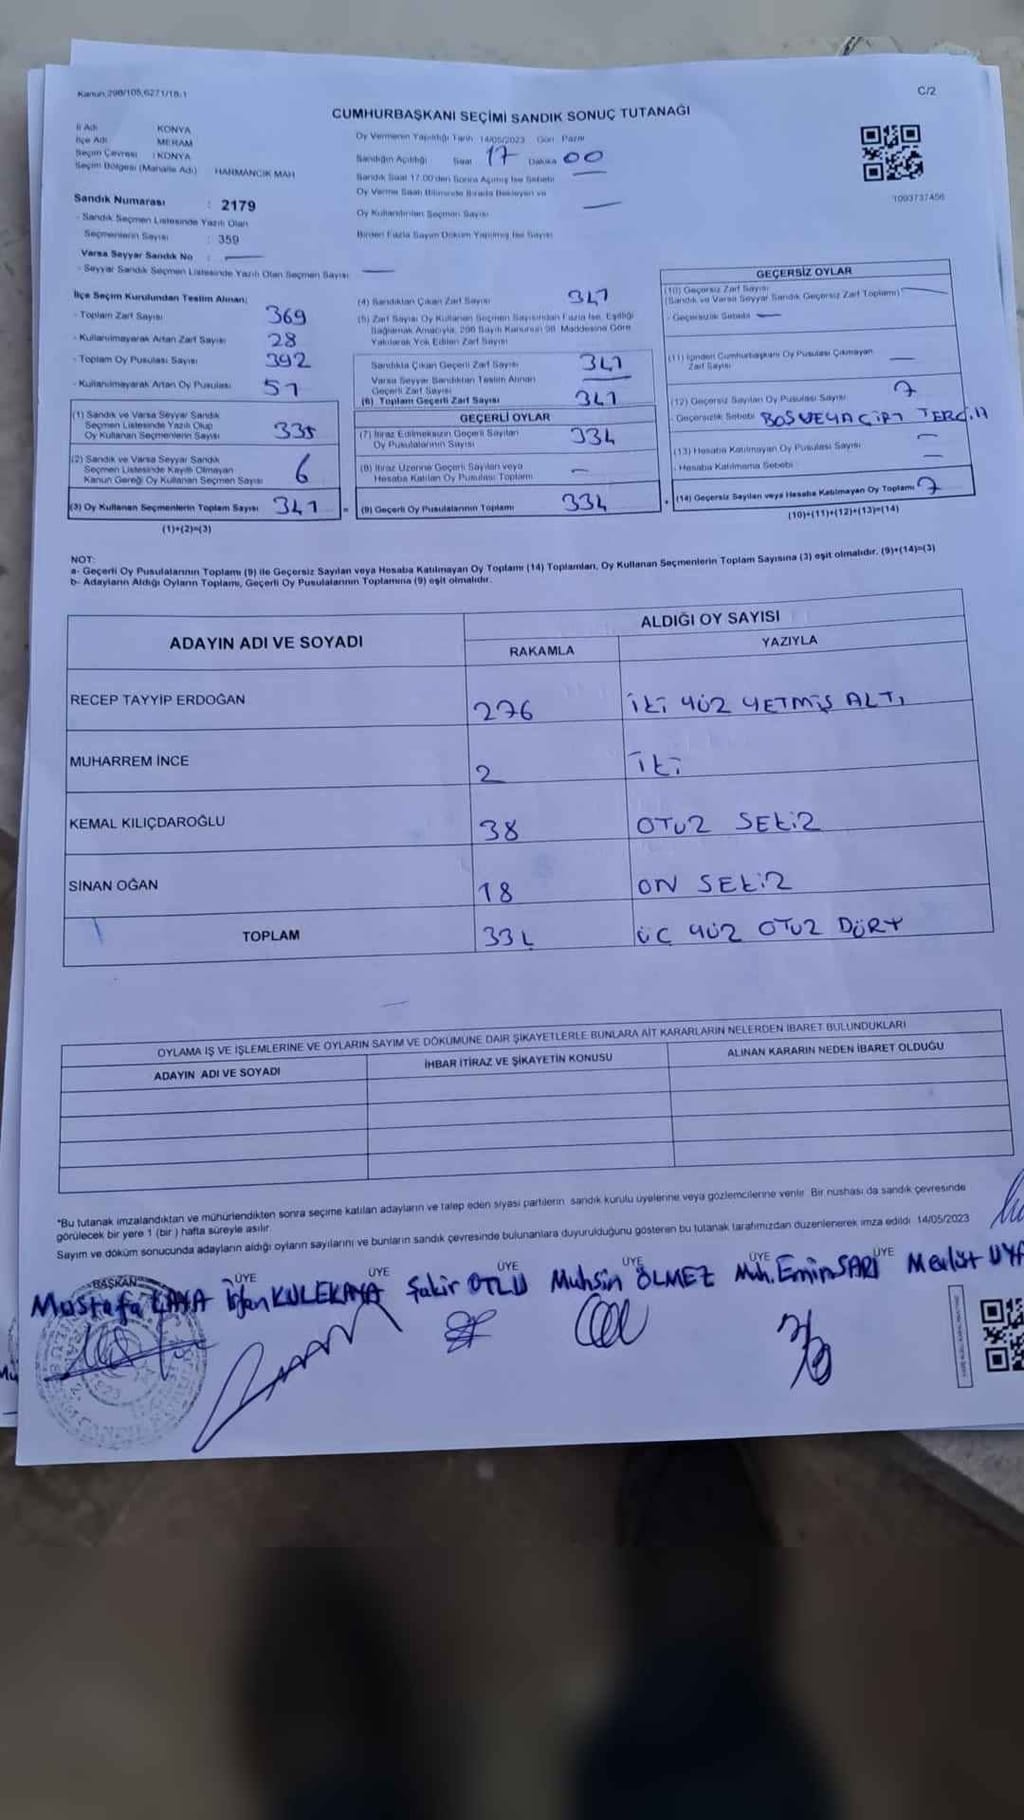 Kanun 298/105,6271/18-1
C/2
CUMHURBAŞKANI SEÇİMİ SANDIK SONUÇ TUTANAĞI
İl Adı KONYA
İlçe Adı MERAM
Seçim Çevresi : KONYA
Seçim Bölgesi (Mahalle Adı) HARMANCIK MAH
Sandık Numarası : 2179
- Sandık Seçmen Listesinde Yazılı Olan
Seçmenlerin Sayısı : 359
Varsa Seyyar Sandık No :
- Seyyar Sandık Seçmen Listesinde Yazılı Olan Seçmen Sayısı
Oy Vermenin Yapıldığı Tarih 14/05/2023 Gün Pazar
Sandığın Açıldığı Saat 17 Dakika 00
Sandık Saat 17.00'den Sonra Açılmış İse Sebebi
Oy Verme Saati Bitiminde Sırada Bekleyen ve
Oy Kullandırılan Seçmen Sayısı
Birden Fazla Sayım Döküm Yapılmış İse Sayısı
1093737456
İlçe Seçim Kurulundan Teslim Alınan:
- Toplam Zarf Sayısı 369
- Kullanılmayarak Artan Zarf Sayısı 28
- Toplam Oy Pusulası Sayısı 392
- Kullanılmayarak Artan Oy Pusulası 51
(1) Sandık ve Varsa Seyyar Sandık
Seçmen Listesinde Yazılı Olup
Oy Kullanan Seçmenlerin Sayısı 335
(2) Sandık ve Varsa Seyyar Sandık
Seçmen Listesinde Kayıtlı Olmayan
Kanun Gereği Oy Kullanan Seçmen Sayısı 6
(3) Oy Kullanan Seçmenlerin Toplam Sayısı 341
(1)+(2)=(3)
(4) Sandıktan Çıkan Zarf Sayısı 341
(5) Zarf Sayısı Oy Kullanan Seçmen Sayısından Fazla İse, Eşitliği
Sağlamak Amacıyla, 298 Sayılı Kanunun 98. Maddesine Göre
Yakılarak Yok Edilen Zarf Sayısı
Sandıkta Çıkan Geçerli Zarf Sayısı 341
Varsa Seyyar Sandıktan Teslim Alınan
Geçerli Zarf Sayısı
(6) Toplam Geçerli Zarf Sayısı 341
GEÇERLİ OYLAR
(7) İtiraz Edilmeksizin Geçerli Sayılan
Oy Pusulalarının Sayısı 334
(8) İtiraz Üzerine Geçerli Sayılan veya
Hesaba Katılan Oy Pusulası Toplamı
= (9) Geçerli Oy Pusulalarının Toplamı 334
GEÇERSİZ OYLAR
(10) Geçersiz Zarf Sayısı
(Sandık ve Varsa Seyyar Sandık Geçersiz Zarf Toplamı)
- Geçersizlik Sebebi
(11) İçinden Cumhurbaşkanı Oy Pusulası Çıkmayan
Zarf Sayısı
(12) Geçersiz Sayılan Oy Pusulası Sayısı 7
- Geçersizlik Sebebi BOŞ VEYA ÇİFT TERCİH
(13) Hesaba Katılmayan Oy Pusulası Sayısı
- Hesaba Katılmama Sebebi
+ (14) Geçersiz Sayılan veya Hesaba Katılmayan Oy Toplamı 7
(10)+(11)+(12)+(13)=(14)
NOT:
a- Geçerli Oy Pusulalarının Toplamı (9) ile Geçersiz Sayılan veya Hesaba Katılmayan Oy Toplamı (14) Toplamları, Oy Kullanan Seçmenlerin Toplam Sayısına (3) eşit olmalıdır. (9)+(14)=(3)
b- Adayların Aldığı Oyların Toplamı, Geçerli Oy Pusulalarının Toplamına (9) eşit olmalıdır.
ADAYIN ADI VE SOYADI
ALDIĞI OY SAYISI
RAKAMLA YAZIYLA
RECEP TAYYİP ERDOĞAN 276 İKİ YÜZ YETMİŞ ALTI
MUHARREM İNCE 2 İKİ
KEMAL KILIÇDAROĞLU 38 OTUZ SEKİZ
SİNAN OĞAN 18 ON SEKİZ
TOPLAM 334 ÜÇ YÜZ OTUZ DÖRT
OYLAMA İŞ VE İŞLEMLERİNE VE OYLARIN SAYIM VE DÖKÜMÜNE DAİR ŞİKAYETLERLE BUNLARA AİT KARARLARIN NELERDEN İBARET BULUNDUKLARI
ADAYIN ADI VE SOYADI İHBAR İTİRAZ VE ŞİKAYETİN KONUSU ALINAN KARARIN NEDEN İBARET OLDUĞU
*Bu tutanak imzalandıktan ve mühürlendikten sonra seçime katılan adayların ve talep eden siyasi partilerin sandık kurulu üyelerine veya gözlemcilerine verilir. Bir nushası da sandık çevresinde
görülecek bir yere 1 (bir) hafta süreyle asılır.
Sayım ve döküm sonucunda adayların aldığı oyların sayılarını ve bunların sandık çevresinde bulunanlara duyurulduğunu gösteren bu tutanak tarafımızdan düzenlenerek imza edildi 14/05/2023
BAŞKAN ÜYE ÜYE ÜYE ÜYE ÜYE ÜYE
Mustafa KAYA İrfan KULEKAYA Şakir OTLU Muhsin ÖLMEZ Muh. Emin SARI Mevlüt UYA